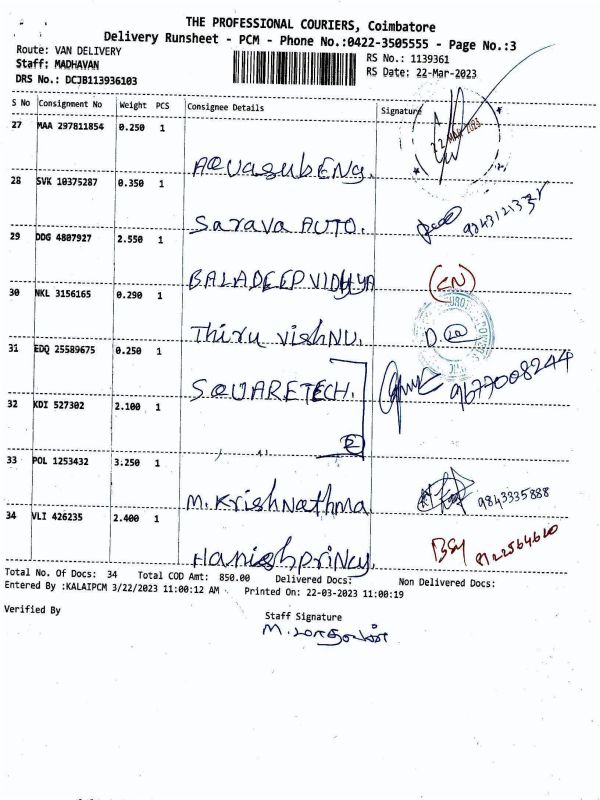 THE PROFESSIONAL COURIERS, Coimbatore
Delivery Runsheet - PCM - Phone No.:0422-3505555 - Page No.:3
Route: VAN DELIVERY
Staff: MADHAVAN
DRS No.: DCJB113936103
RS No.: 1139361
RS Date: 22-Mar-2023
S No Consignment No Weight PCS Consignee Details Signature
27 MAA 297811854 0.250 1
AQUasubENg.
28 SVK 10375287 0.350 1
Sarava AUTO.
29 DDG 4807927 2.550 1
BALADEEP VIDHYA
30 NKL 3156165 0.290 1
Thiru vishNU.
31 EDQ 25589675 0.250 1
SQUARETECH. 9677008244
32 KDI 527302 2.100 1
33 POL 1253432 3.250 1
M. KrishNathma 9843335888
34 VLI 426235 2.400 1
Total No. Of Docs: 34 Total COD Amt: 850.00 Delivered Docs: Non Delivered Docs:
Entered By :KALAIPCM 3/22/2023 11:00:12 AM Printed On: 22-03-2023 11:00:19
Verified By
Staff Signature